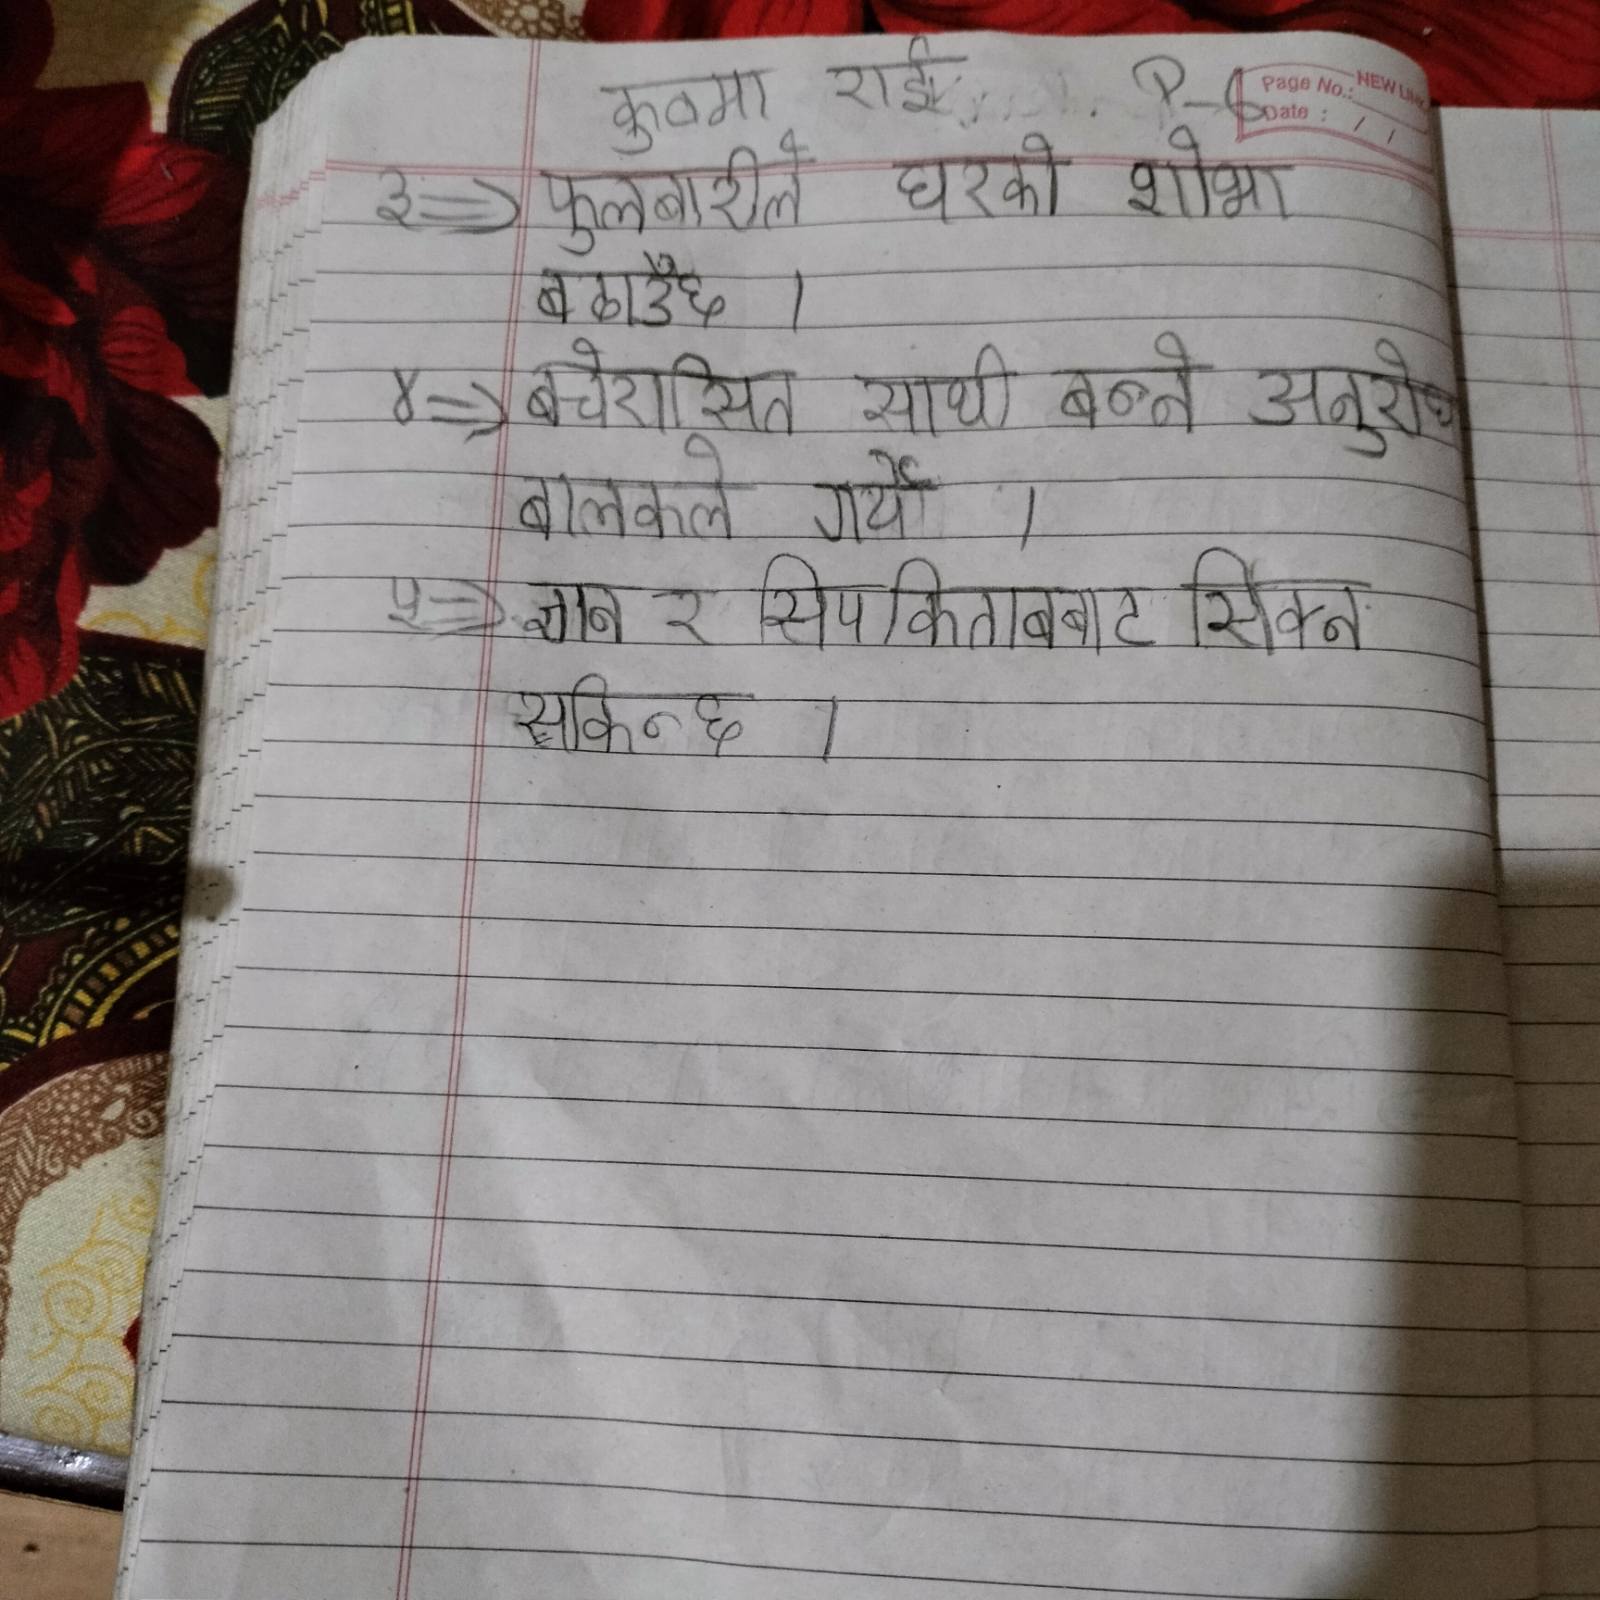 कुठमा राई P-6
Page No.: NEW LINK
Date : / /
३⇒ फुलबारीले घरको शोभा
बढाउँछ ।
४⇒ बचेरासित साथी बन्ने अनुरोध
बालकले गर्यो ।
५⇒ ज्ञान र सिप किताबबाट सिक्न
सकिन्छ ।